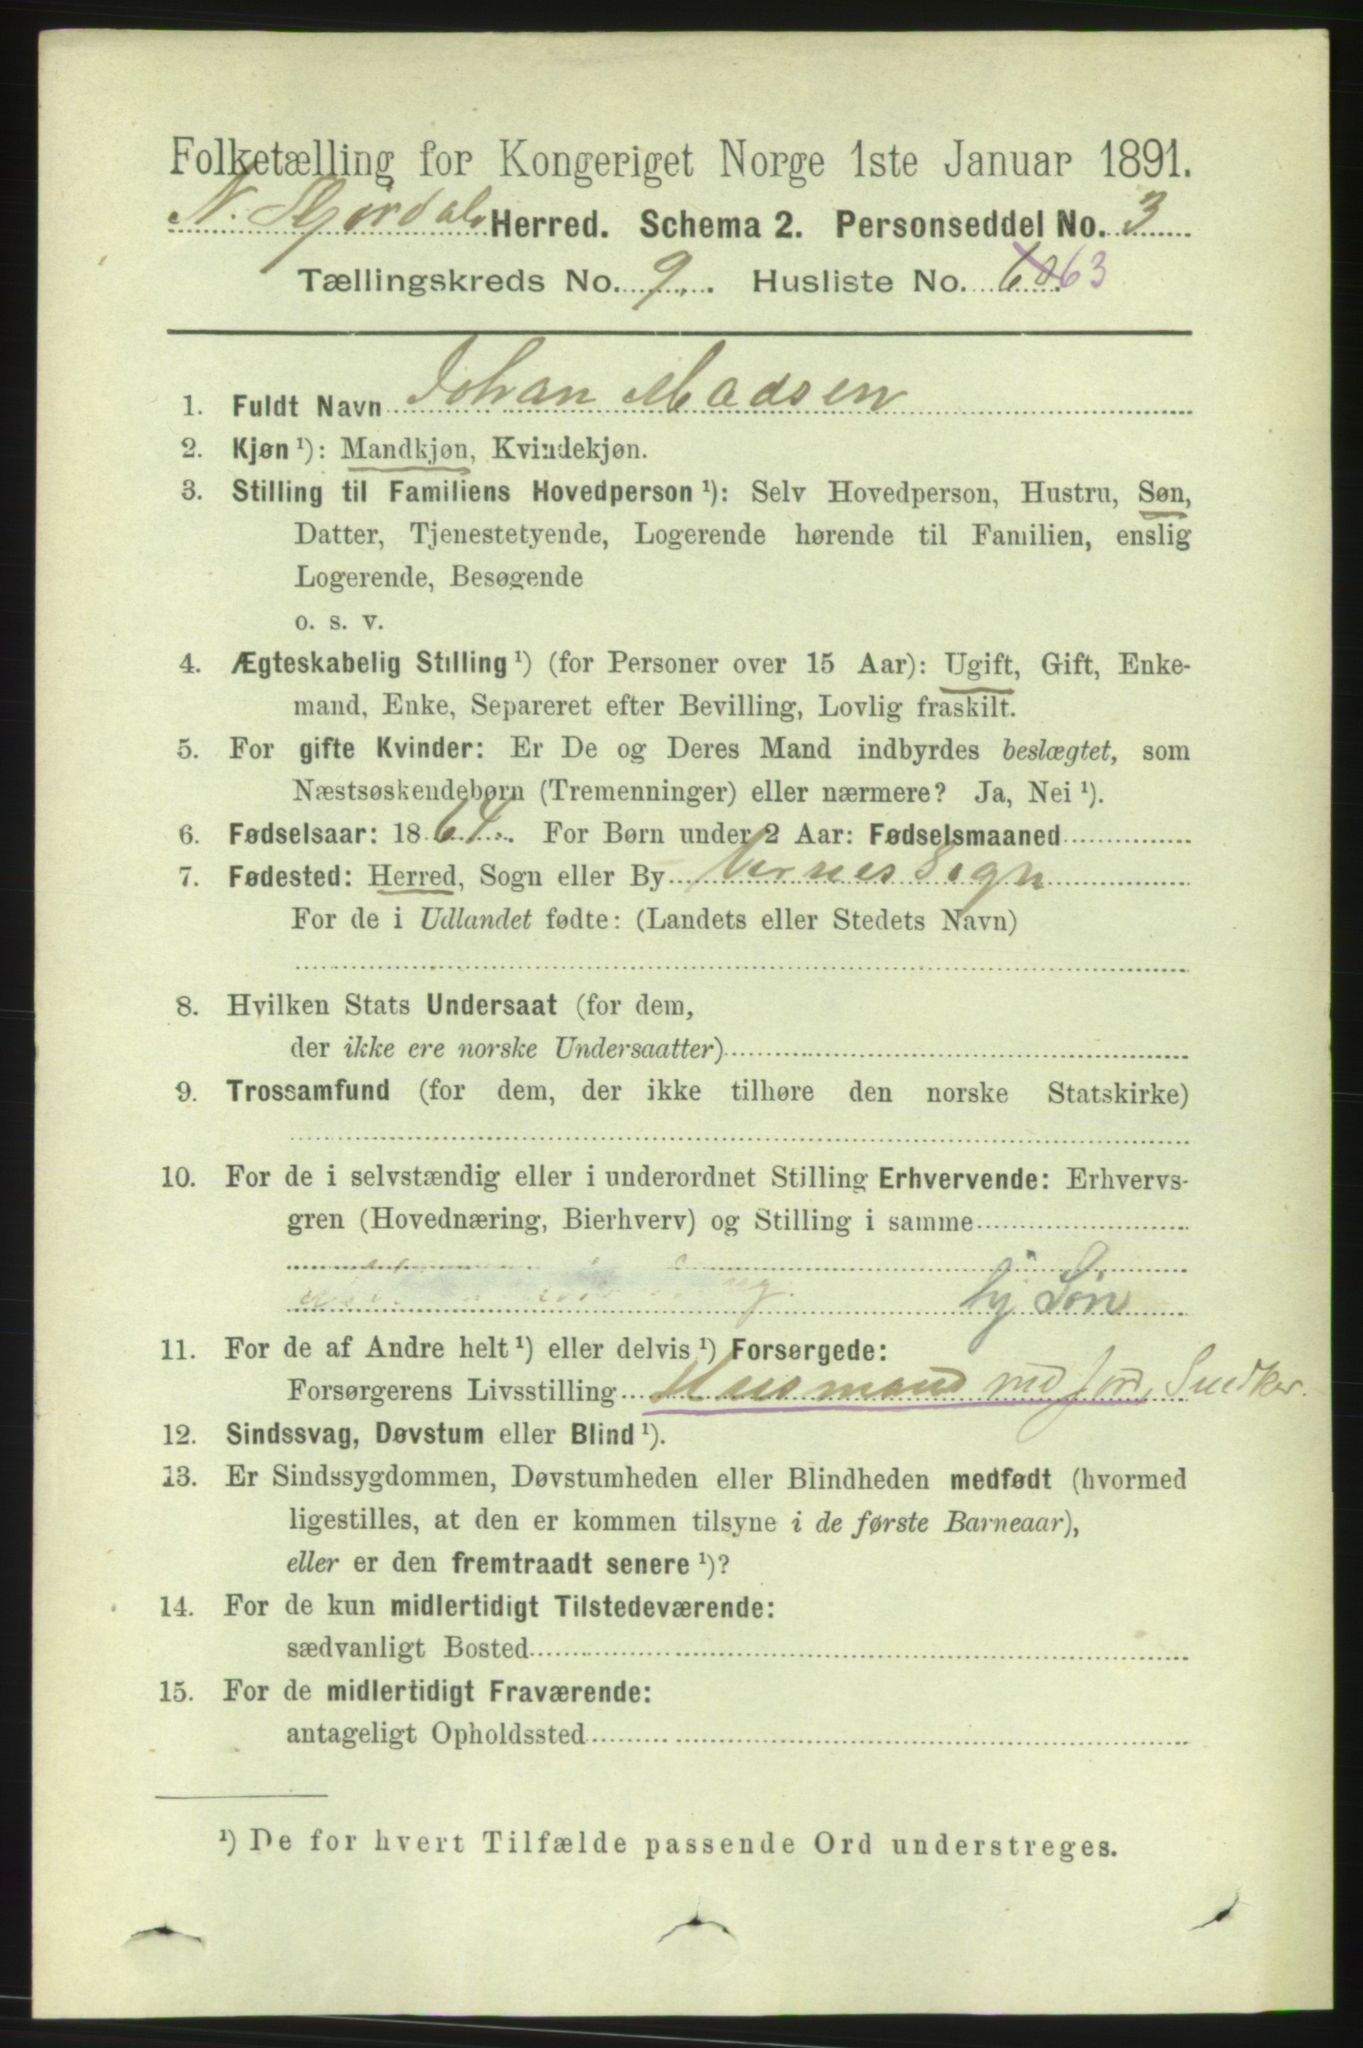 Folketælling for Kongeriget Norge 1ste Januar 1891.
N. Stjørdals Herred. Schema 2. Personseddel No. 3
Tællingskreds No. 9. Husliste No. 60 63
1. Fuldt Navn Johan Madsen
2. Kjøn ¹): Mandkjøn, Kvindekjøn.
3. Stilling til Familiens Hovedperson ¹): Selv Hovedperson, Hustru, Søn,
Datter, Tjenestetyende, Logerende hørende til Familien, enslig
Logerende, Besøgende
o. s. v.
4. Ægteskabelig Stilling ¹) (for Personer over 15 Aar): Ugift, Gift, Enke-
mand, Enke, Separeret efter Bevilling, Lovlig fraskilt.
5. For gifte Kvinder: Er De og Deres Mand indbyrdes beslægtet, som
Næstsøskendebørn (Tremenninger) eller nærmere? Ja, Nei ¹).
6. Fødselsaar: 1864. For Børn under 2 Aar: Fødselsmaaned
7. Fødested: Herred, Sogn eller By Vernes Sogn
For de i Udlandet fødte: (Landets eller Stedets Navn)
8. Hvilken Stats Undersaat (for dem,
der ikke ere norske Undersaatter)
9. Trossamfund (for dem, der ikke tilhøre den norske Statskirke)
10. For de i selvstændig eller i underordnet Stilling Erhvervende: Erhvervs-
gren (Hovednæring, Bierhverv) og Stilling i samme
hj Søn
11. For de af Andre helt ¹) eller delvis ¹) Forsørgede:
Forsørgerens Livsstilling Husmand m Jord, Snedker.
12. Sindssvag, Døvstum eller Blind ¹).
13. Er Sindssygdommen, Døvstumheden eller Blindheden medfødt (hvormed
ligestilles, at den er kommen tilsyne i de første Barneaar),
eller er den fremtraadt senere ¹)?
14. For de kun midlertidigt Tilstedeværende:
sædvanligt Bosted
15. For de midlertidigt Fraværende:
antageligt Opholdssted
¹) De for hvert Tilfælde passende Ord understreges.